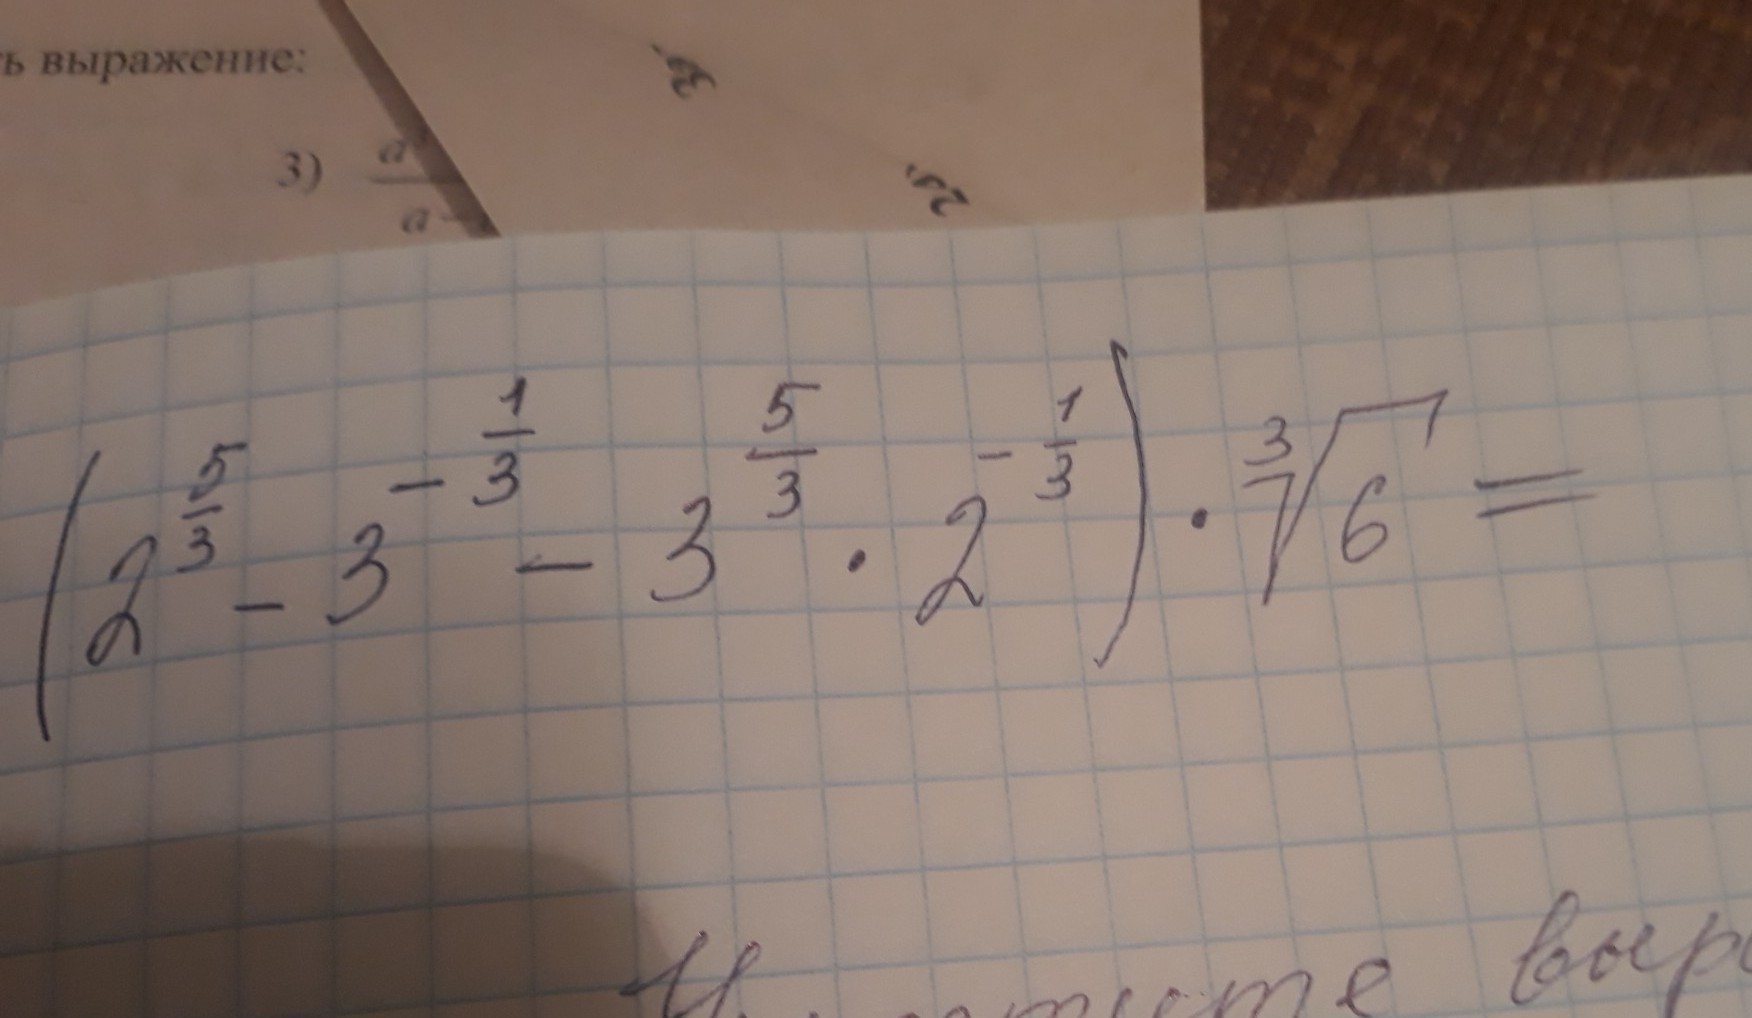 выражение:
3) a / a -
(2^{5/3} - 3^{-1/3} - 3^{5/3} · 2^{-1/3}) · ∛6 =